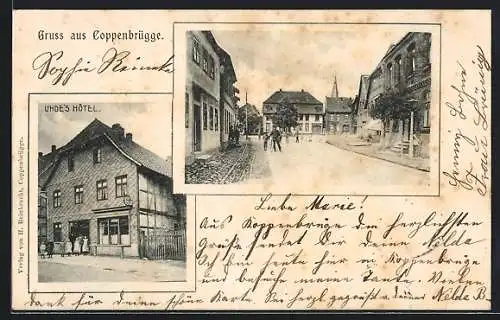 Gruss aus Coppenbrügge.
Sophie Reineke
UHDE'S HÔTEL.
Verlag von H. Reinstrecht, Coppenbrügge.
Liebe Marie!
Aus Koppenbrügge die herzlichsten
Grüße sendet Dir Deine Nelda
Ich bin heute hier in Koppenbrügge
und besuche meine Tante. Vielen
Dank für Deine schöne Karte. Sei herzl. gegrüßt v. deiner Nelda B
Henny
Sophie